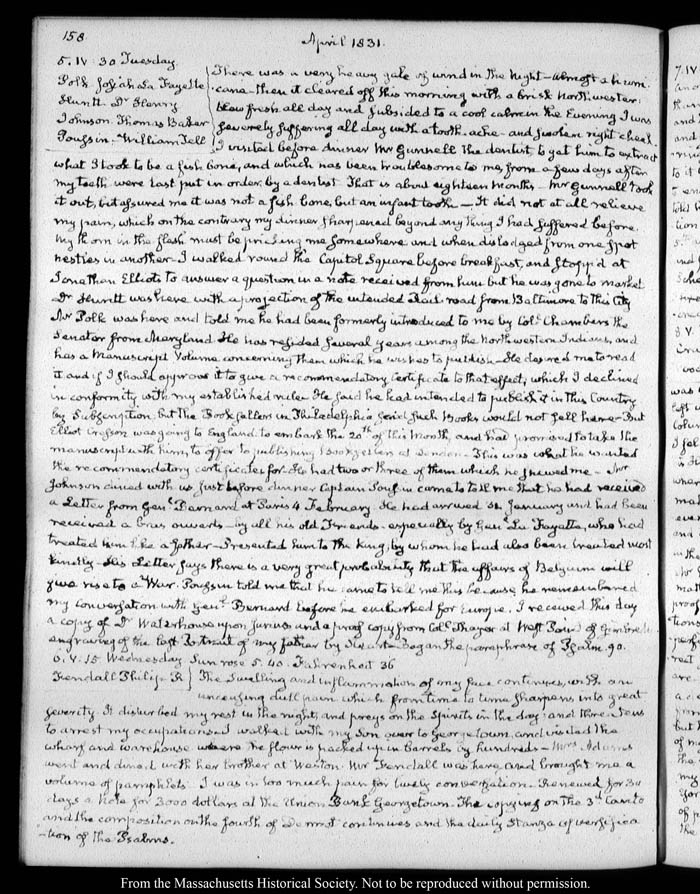 158
April 1831.
5. IV 30 Tuesday.
Polk Josiah La Fayette
Huntt. Dr. Henry
Johnson. Thomas Baker
Poussin. William Tell
There was a very heavy gale of wind in the Night — almost a hurri-
cane — then it cleared off this morning with a brisk Northwester:
blew fresh all day and subsided to a cool calm in the Evening I was
severely suffering all day with a tooth-ache — and swolen right cheek.
I visited before dinner Mr Gunnell the dentist to get him to extract
what I took to be a fish bone, and which has been troublesome to me, from a few days after
my teeth were last put in order by a dentist. That is about eighteen Months — Mr Gunnell took
it out, but assured me it was not a fish bone, but an infant tooth — It did not at all relieve
my pain, which on the contrary my dinner sharpened beyond any thing I had suffered before.
My thorn in the flesh must be pricking me somewhere and when dislodged from one spot
nestles in another — I walked round the Capitol Square before breakfast, and stopp'd at
Jonathan Elliot's to answer a question in a note received from him but he was gone to market
Dr Huntt was here with a projection of the intended Rail-road from Baltimore to this City
Mr Polk was here and told me he had been formerly introduced to me by Coll. Chambers the
Senator from Maryland. He has resided several years among the Northwestern Indians, and
has a Manuscript Volume concerning them which he wishes to publish — He desired me to read
it and if I should approve it to give a recommendatory Certificate to that effect, which I declined
in conformity with my established rule. He said he had intended to publish it in this Country
by Subscription, but the Booksellers in Philadelphia said such Books would not sell here — But
Elliot Cresson was going to England to embark the 20th of this Month, and had promised to take the
manuscript with him, to offer to publishing Booksellers at London. — This was what he wanted
the recommendatory certificates for — He had two or three of them which he shewed me — Mr
Johnson dined with us Just before dinner Captain Poussin came to tell me that he had received
a Letter from Genl. Bernard at Paris 4 February. He had arrived 31 January and had been
received a bras ouverts — by all his old Friends — especially by Genl. La Fayette, who had
treated him like a father — Presented him to the King, by whom he had also been treated most
kindly — His Letter says there is a very great probability that the affairs of Belgium will
give rise to a War. Poussin told me that he came to tell me this because he remembered
my conversation with Genl. Bernard before he embarked for Europe. I received this day
a copy of Dr Waterhouse upon Junius and a proof copy from Coll. Thayer at West Point of
engraving of the last Portrait of my father by Stuart. Began the paraphrase of Psalm. 90.
6. V. 15 Wednesday Sun rose 5. 40. Fahrenheit 36
Kendall Philip R
The Swelling and inflammation of my face continues, with an
unceasing dull pain which from time to time sharpens into great
severity It disturbed my rest in the night, and preys on the Spirits in the day: and threatens
to arrest my occupations. I walked with my Son over to Georgetown, and visited the
wharf and warehouse where the flour is packed up in barrels by hundreds — Mrs Adams
went and dined with her brother at Weston. Mr Kendall was here and brought me a
volume of pamphlets. I was in too much pain for lively conversation. Renewed for 30
days a Note for 3000 dollars at the Union Bank Georgetown. The copying on the 3d Canto
and the composition on the fourth of Dermot continues and the daily Stanza of versifica
-tion of the Psalms.
From the Massachusetts Historical Society. Not to be reproduced without permission.